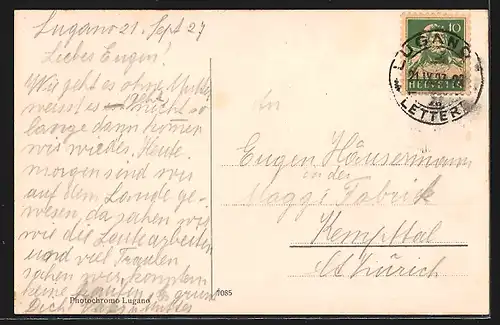 Lugano 21. Sept 27
Liebes Eugen!
Wie geht es ohne Mutter
weisst es geht nicht so
lange dann kommen
wir wieder. Heute
morgen sind wir
auf dem Lande ge-
wesen, da sahen wir
wie die Leute arbeiten
und viel Trauben
sahen wir, konnten
keine kaufen, es grüsst
Dich Vater u Mutter
Photochromo Lugano
1085
10
HELVETIA
LUGANO
21.IX.27
LETTERE
An
Eugen Häusermann
in der
Maggi Fabrik
Kempttal
Ct Zürich